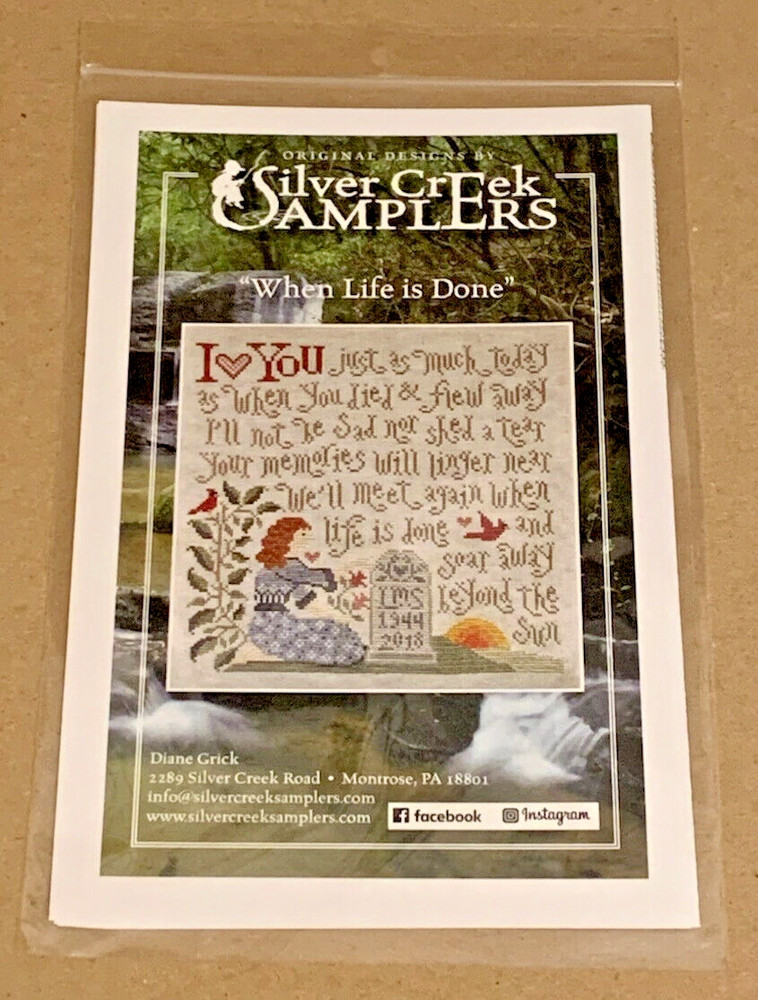 ORIGINAL DESIGNS BY
Silver CrEek
SAMPLERS
“When Life is Done”
I YOU just as much today
as When You died & flew away
I'll not be Sad nor shed a tear
Your memories Will linger near
We'll meet again when
life is done and
soar away
beyond the
Sun
LMS
1944
2018
Diane Grick
2289 Silver Creek Road • Montrose, PA 18801
info@silvercreeksamplers.com
www.silvercreeksamplers.com
facebook
Instagram